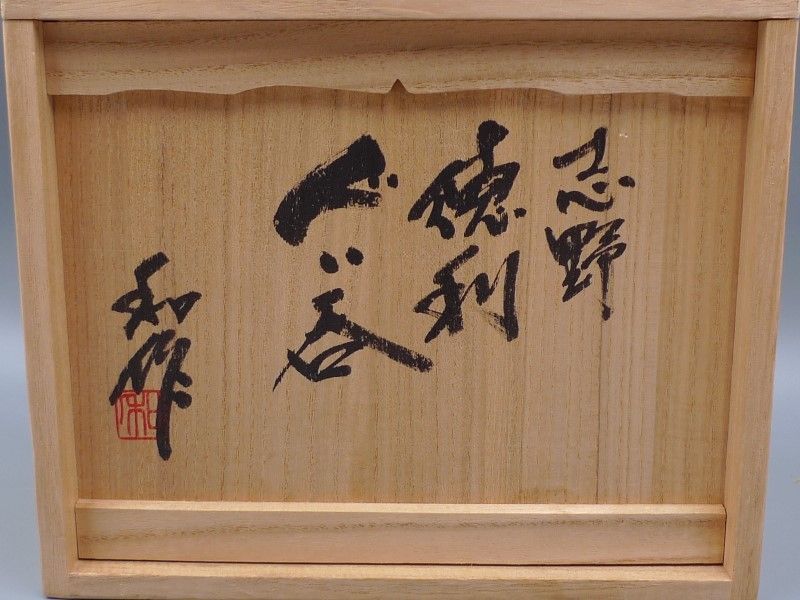 志野
徳利
ぐい呑
和作
和